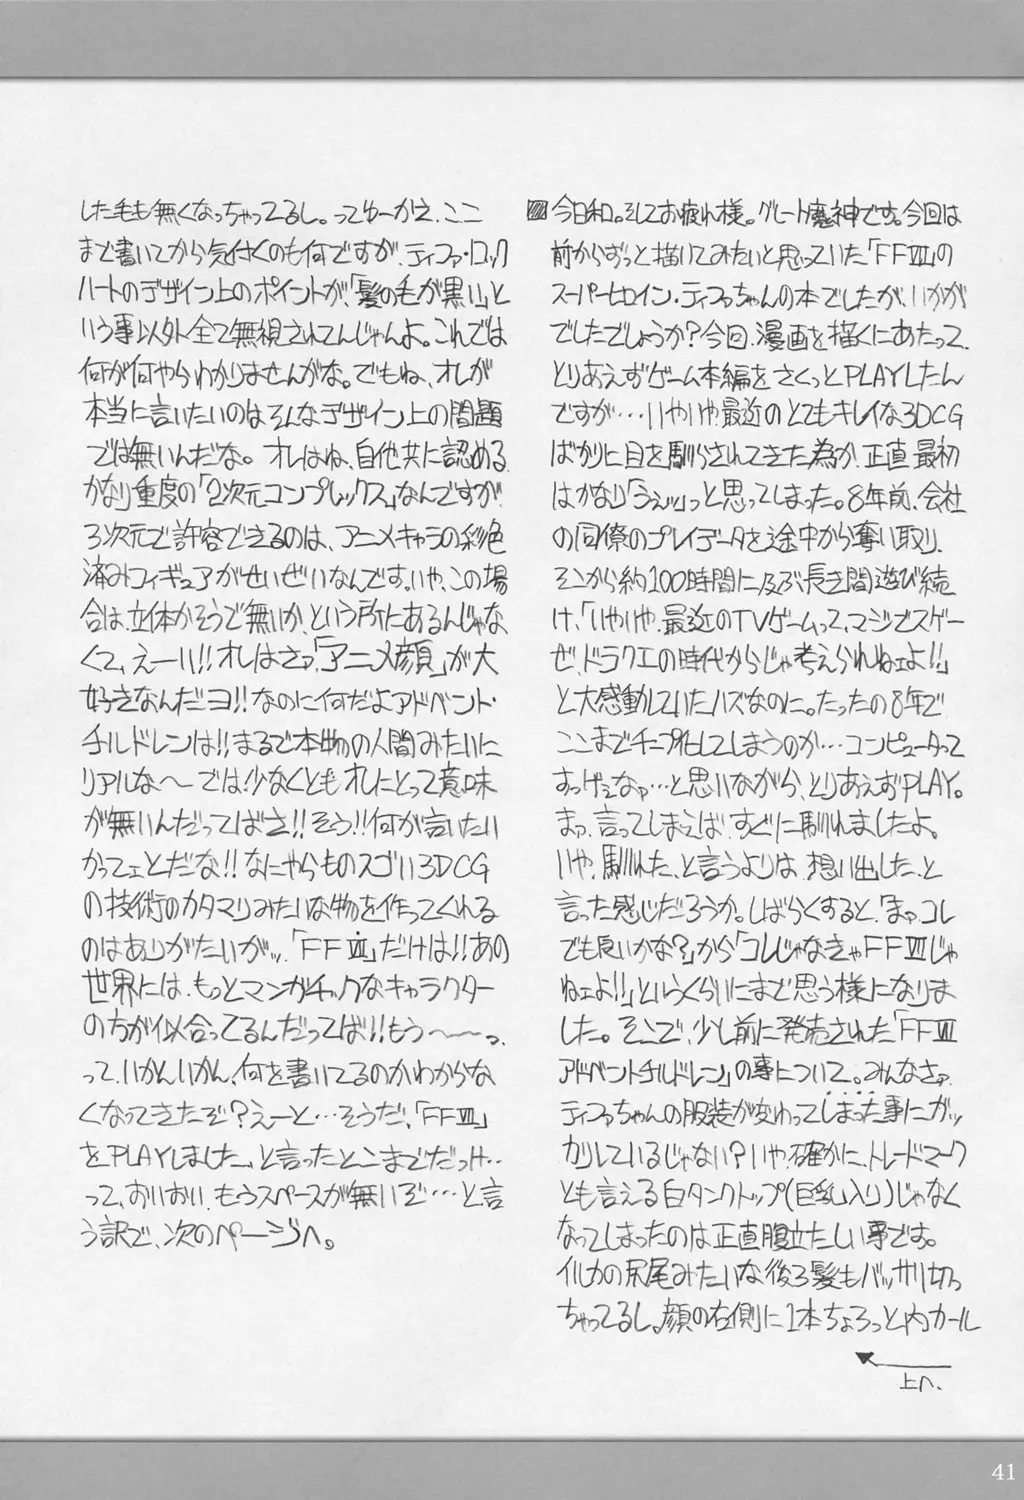 ▨今日和。そしてお疲れ様。グレート魔神です。今回は
前からずっと描いてみたいと思っていた「FFⅦ」の
スーパーヒロイン・ティファちゃんの本でしたが、いかが
でしたでしょうか?今回、漫画を描くにあたって、
とりあえずゲーム本編をさくっとPLAYしたん
ですが…いやいや、最近のとてもキレイな3DCG
ばかりに目を馴らされてきた為か、正直、最初
はかなり「うえッ」っと思ってしまった。8年前、会社
の同僚のプレイデータを途中から奪い取り、
そこから約100時間に及ぶ長き間遊び続
け、「いやいや、最近のTVゲームって、マジでスゲー
ぜ、ドラクエの時代からじゃ考えられねェよ!!」
と大感動していたハズなのに。たったの8年で
ここまでチープ化してしまうのか…コンピュータって
すっげぇなァ…と思いながら、とりあえずPLAY。
まァ、言ってしまえば、すぐに馴れましたよ。
いや、馴れた、と言うよりは、想い出した、と
言った感じだろうか。しばらくすると、「まァコレ
でも良いかな?」から「コレじゃなきゃFFⅦじゃ
ねェよ!!」というくらいにまで思う様になりま
した。そこで、少し前に発売された「FFⅦ
アドベントチルドレン」の事について。みんなさァ、
ティファちゃんの服装が変わってしまった事にガッ
カリしているじゃない?いや、確かに、トレードマーク
とも言える白タンクトップ(巨乳入り)じゃなく
なってしまったのは正直腹立たしい事です。
イルカの尻尾みたいな後ろ髪もバッサリ切っ
ちゃってるし。顔の右側に1本ちょろっと内カール
上へ、
した毛も無くなっちゃってるし。ってゆーかえ、ここ
まで書いてから気付くのも何ですが、ティファ・ロック
ハートのデザイン上のポイントが、「髪の毛が黒い」と
いう事以外全て無視されてんじゃんよ。これでは
何が何やらわかりませんがな。でもね、オレが
本当に言いたいのはそんなデザイン上の問題
では無いんだな。オレはね、自他共に認める、
かなり重度の「2次元コンプレックス」なんですが、
3次元で許容できるのは、アニメキャラの彩色
済みフィギュアがせいぜいなんです。いや、この場
合は、立体かそうで無いか、という所にあるんじゃな
くて、えーい!!オレはさァ、「アニメ顔」が大
好きなんだヨ!!なのに何だよアドベント・
チルドレンは!!まるで本物の人間みたいに
リアルな〜では!少なくともオレにとって意味
が無いんだってばさ!!そう!!何が言いたい
かってェとだな!!なにやらものスゴい3DCG
の技術のカタマリみたいな物を作ってくれる
のはありがたいがッ、「FFⅦ」だけは!!あの
世界には、もっとマンガチックなキャラクター
の方が似合ってるんだってば!!もう〜〜っ
って、いかんいかん、何を書いてるのかわからな
くなってきたぞ?えーと…そうだ、「FFⅦ」
をPLAYしました、と言ったとこまでだっけ…
って、おいおい、もうスペースが無いぞ…と言
う訳で、次のページへ。
41